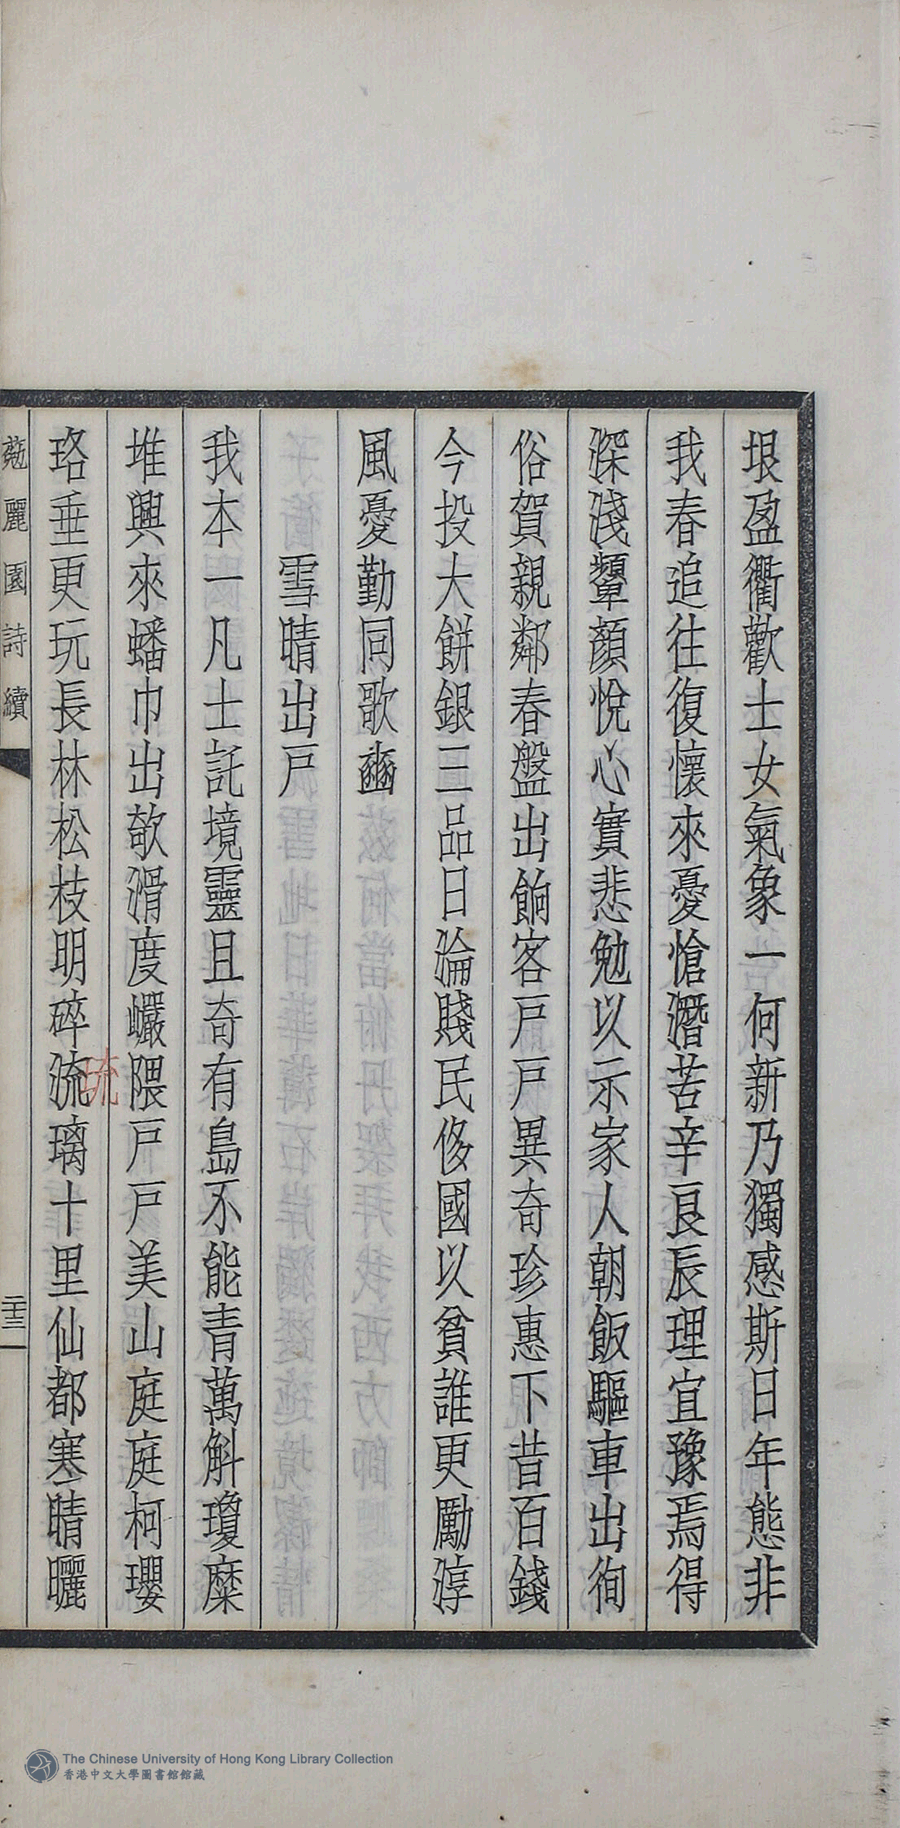 垠盈衢歡士女氣象一何新乃獨感斯日年態非
我春追往復懷來憂愴潛苦辛良辰理宜豫焉得
深淺顰顏悅心實悲勉以示家人朝飯驅車出徇
俗賀親鄰春盤出餉客戶戶異奇珍惠下昔百錢
今投大餅銀三品日淪賤民侈國以貧誰更勵淳
風憂勤同歌豳
雪晴出戶
我本一凡士託境靈且奇有島不能青萬斛瓊糜
堆興來蟠巾出欹滑度巘隈戶戶美山庭庭柯瓔
珞垂更玩長林松枝明碎流璃十里仙都寒晴曬
琉
蒐麗園詩續
二十三
The Chinese University of Hong Kong Library Collection
香港中文大學圖書館館藏